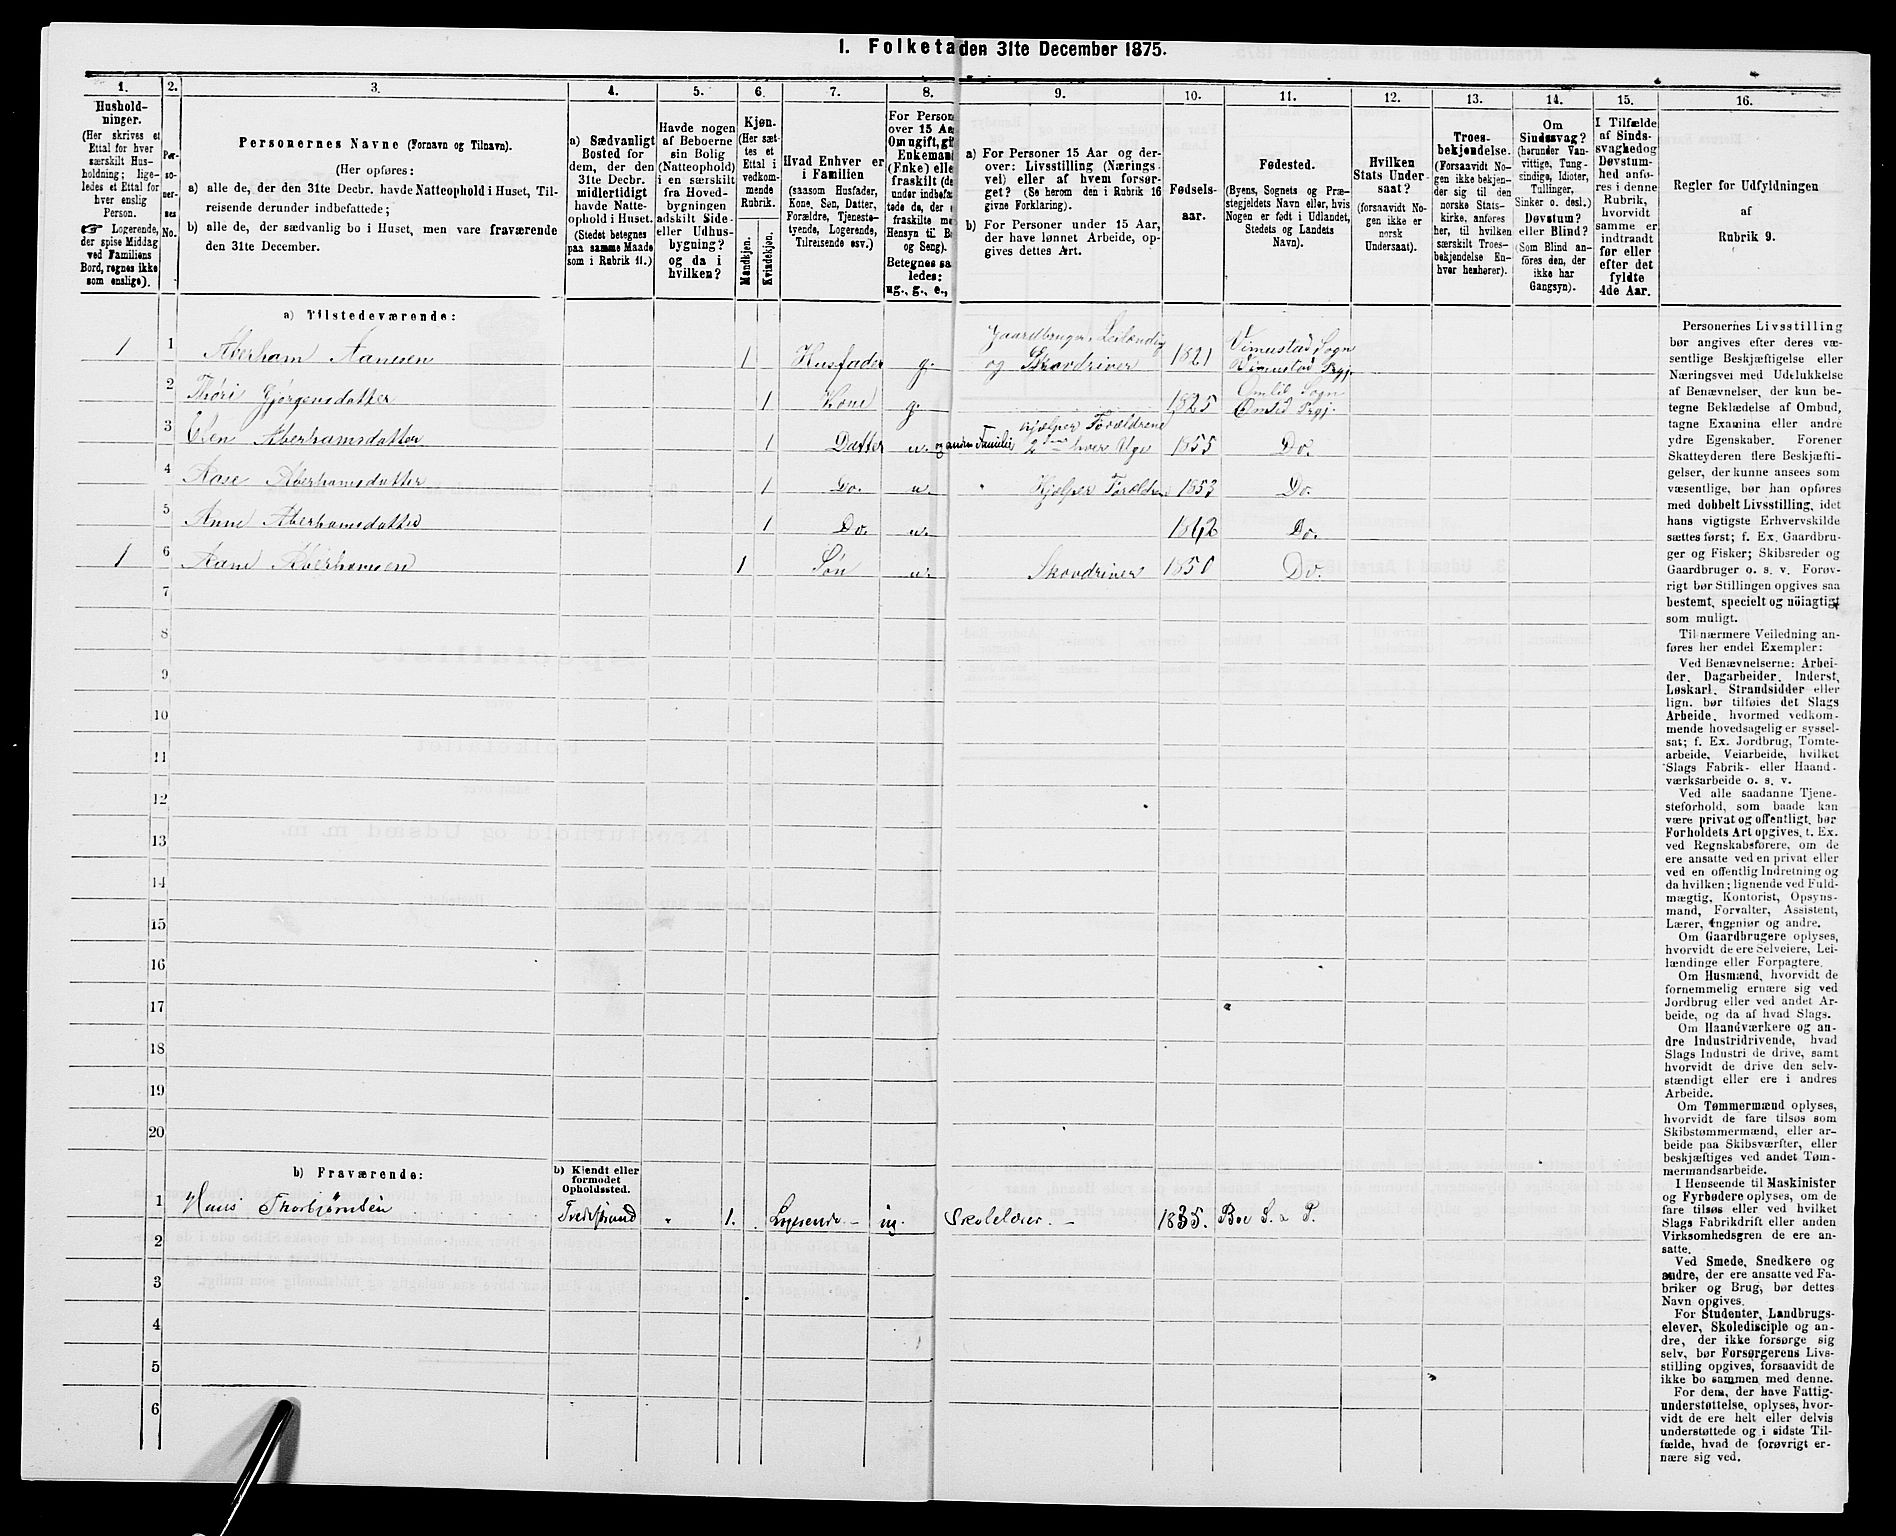 1. Folketa den 31te December 1875.
1. 2. 3. 4. 5. 6. 7. 8. 9. 10. 11. 12. 13. 14. 15. 16.
Hushold-
ninger.
(Her skrives et
Ettal for hver
særskilt Hus-
holdning; lige-
ledes et Ettal for
hver enslig
Person.
☞ Logerende,
der spise Middag
ved Familiens
Bord, regnes ikke
som enslige).
Per-
so-
ner-
nes
No.
Personernes Navne (Fornavn og Tilnavn).
(Her opføres:
a) alle de, der den 31te Decbr. havde Natteophold i Huset, Til-
reisende derunder indbefattede;
b) alle de, der sædvanlig bo i Huset, men vare fraværende
den 31te December.
a) Sædvanligt
Bosted for
dem, der den
31te Decbr.
midlertidigt
havde Natte-
ophold i Huset.
(Stedet betegnes
paa samme Maade
som i Rubrik 11.)
Havde nogen
af Beboerne
sin Bolig
(Natteophold)
i en særskilt
fra Hoved-
bygningen
adskilt Side-
eller Udhus-
bygning?
og da i
hvilken?
Kjøn.
(Her sæt-
tes et
Ettal i
vedkom-
mende
Rubrik.
Mandkjøn.
Kvindekjøn.
Hvad Enhver er
i Familien
(saasom Husfader,
Kone, Søn, Datter,
Forældre, Tjeneste-
tyende, Logerende,
Tilreisende osv.)
For Person
over 15 Aa
Om ugift, gif
Enkeman
(Enke) elle
fraskilt (de
under indbefat-
tede de, der e
fraskilte me
Hensyn til Bo
og Seng).
Betegnes saa
ledes:
ug., g., e.,
a) For Personer 15 Aar og der-
over: Livsstilling (Nærings-
vei) eller af hvem forsør-
get? (Se herom den i Rubrik 16
givne Forklaring).
b) For Personer under 15 Aar,
der have lønnet Arbeide, op-
gives dettes Art.
Fødsels-
aar.
Fødested.
(Byens, Sognets og Præ-
stegjeldets Navn eller, hvis
Nogen er født i Udlandet,
Stedets og Landets
Navn).
Hvilken
Stats Under-
saat?
(forsaavidt No-
gen ikke er
norsk
Undersaat).
Troes-
bekjendelse.
(Forsaavidt No-
gen ikke bekjen-
der sig til den
norske Stats-
kirke, anføres
her, til hvilken
særskilt Troes-
bekjendelse En-
hver henhører).
Om
Sindssvag?
(herunder Van-
vittige, Tung-
sindige, Idioter,
Tullinger,
Sinker o. desl.)
Døvstum?
eller Blind?
(Som Blind an-
føres den, der
ikke har
Gangsyn).
I Tilfælde
af Sinds-
svaghed og
Døvstum-
hed anfø-
res i denne
Rubrik,
hvorvidt
samme er
indtraadt
før eller
efter det
fyldte
4de Aar.
Regler for Udfyldningen
af
Rubrik 9.
a) Tilstedeværende:
1 1 Aberham Aanesen 1 Husfader g. Gaardbruger, Leilænding og Skovdriver 1821 Vimestad Sogn Vimestad Prgj.
2 Thóri Gjørgensdatter 1 Kone g. 1825 Omlid Sogn Omlid Prgj.
3 Elen Aberhamsdatter 1 Datter u. og anden Familie hjælper Forældrene 2 hver Uge 1855 Do.
4 Aase Aberhamsdatter 1 Do. u. Hjælper Forældrene 1853 Do.
5 Anne Aberhamsdatter 1 Do. u. 1862 Do.
1 6 Aane Aberhamsen 1 Søn u. Skovdriver 1850 Do.
7
8
9
10
11
12
13
14
15
16
17
18
19
20
b) Fraværende:
b) Kjendt eller
formodet
Opholdssted.
1 Hans Thorbjørnsen Tvedestrand " 1. Logerende ug. Skolelærer. 1835. Boe S. & P.
2
3
4
5
6
Personernes Livsstilling
bør angives efter deres væ-
sentlige Beskjæftigelse eller
Næringsvei med Udelukkelse
af Benævnelser, der kun be-
tegne Beklædelse af Ombud,
tagne Examina eller andre
ydre Egenskaber. Forener
Skatteyderen flere Beskjæfti-
gelser, der kunne ansees som
væsentlige, bør han opføres
med dobbelt Livsstilling, idet
hans vigtigste Erhvervskilde
sættes først; f. Ex. Gaardbru-
ger og Fisker; Skibsreder og
Gaardbruger o. s. v. Forøv-
rigt bør Stillingen opgives saa
bestemt, specielt og nöiagtigt
som muligt.
Til nærmere Veiledning an-
føres her endel Exempler:
Ved Benævnelserne: Arbei-
der, Dagarbeider, Inderst,
Løskarl, Strandsidder eller
lign. bør tilføies det Slags
Arbeide, hvormed vedkom-
mende hovedsagelig er syssel-
sat; f. Ex. Jordbrug, Tomte-
arbeide, Veiarbeide, hvilket
Slags Fabrik- eller Haand-
værksarbeide o. s. v.
Ved alle saadanne Tjene-
steforhold, som baade kan
være privat og offentligt, bør
Forholdets Art opgives, t. Ex.
ved Regnskabsførere, om de
ere ansatte ved en privat eller
ved en offentlig Indretning og
da hvilken; lignende ved Fuld-
mægtig, Kontorist, Opsyns-
mand, Forvalter, Assistent,
Lærer, Ingeniør og andre.
Om Gaardbrugere oplyses,
hvorvidt de ere Selveiere, Lei-
lændinge eller Forpagtere.
Om Husmænd, hvorvidt de
fornemmelig ernære sig ved
Jordbrug eller ved andet Ar-
beide, og da af hvad Slags.
Om Haandværkere og an-
dre Industridrivende, hvad
Slags Industri de drive, samt
hvorvidt de drive den selv-
stændigt eller ere i andres
Arbeide.
Om Tømmermænd oplyses,
hvorvidt de fare tilsøs som
Skibstømmermænd, eller ar-
beide paa Skibsværfter, eller
beskjæftiges ved andet Tøm-
mermandsarbeide.
I Henseende til Maskinister
og Fyrbødere oplyses, om de
fare tilsøs eller ved hvilket
Slags Fabrikdrift eller anden
Virksomhedsgren de ere an-
satte.
Ved Smede, Snedkere og
andre, der ere ansatte ved Fa-
briker og Brug, bør dettes
Navn opgives.
For Studenter, Landbrugs-
elever, Skoledisciple og an-
dre, der ikke forsørge sig
selv, bør Forsørgerens Livs-
stilling opgives, forsaavidt de
ikke bo sammen med denne.
For dem, der have Fattig-
understøttelse, oplyses, hvor-
vidt de ere helt eller delvis
understøttede og i sidste Til-
fælde, hvad de forøvrigt er-
nære sig ved.